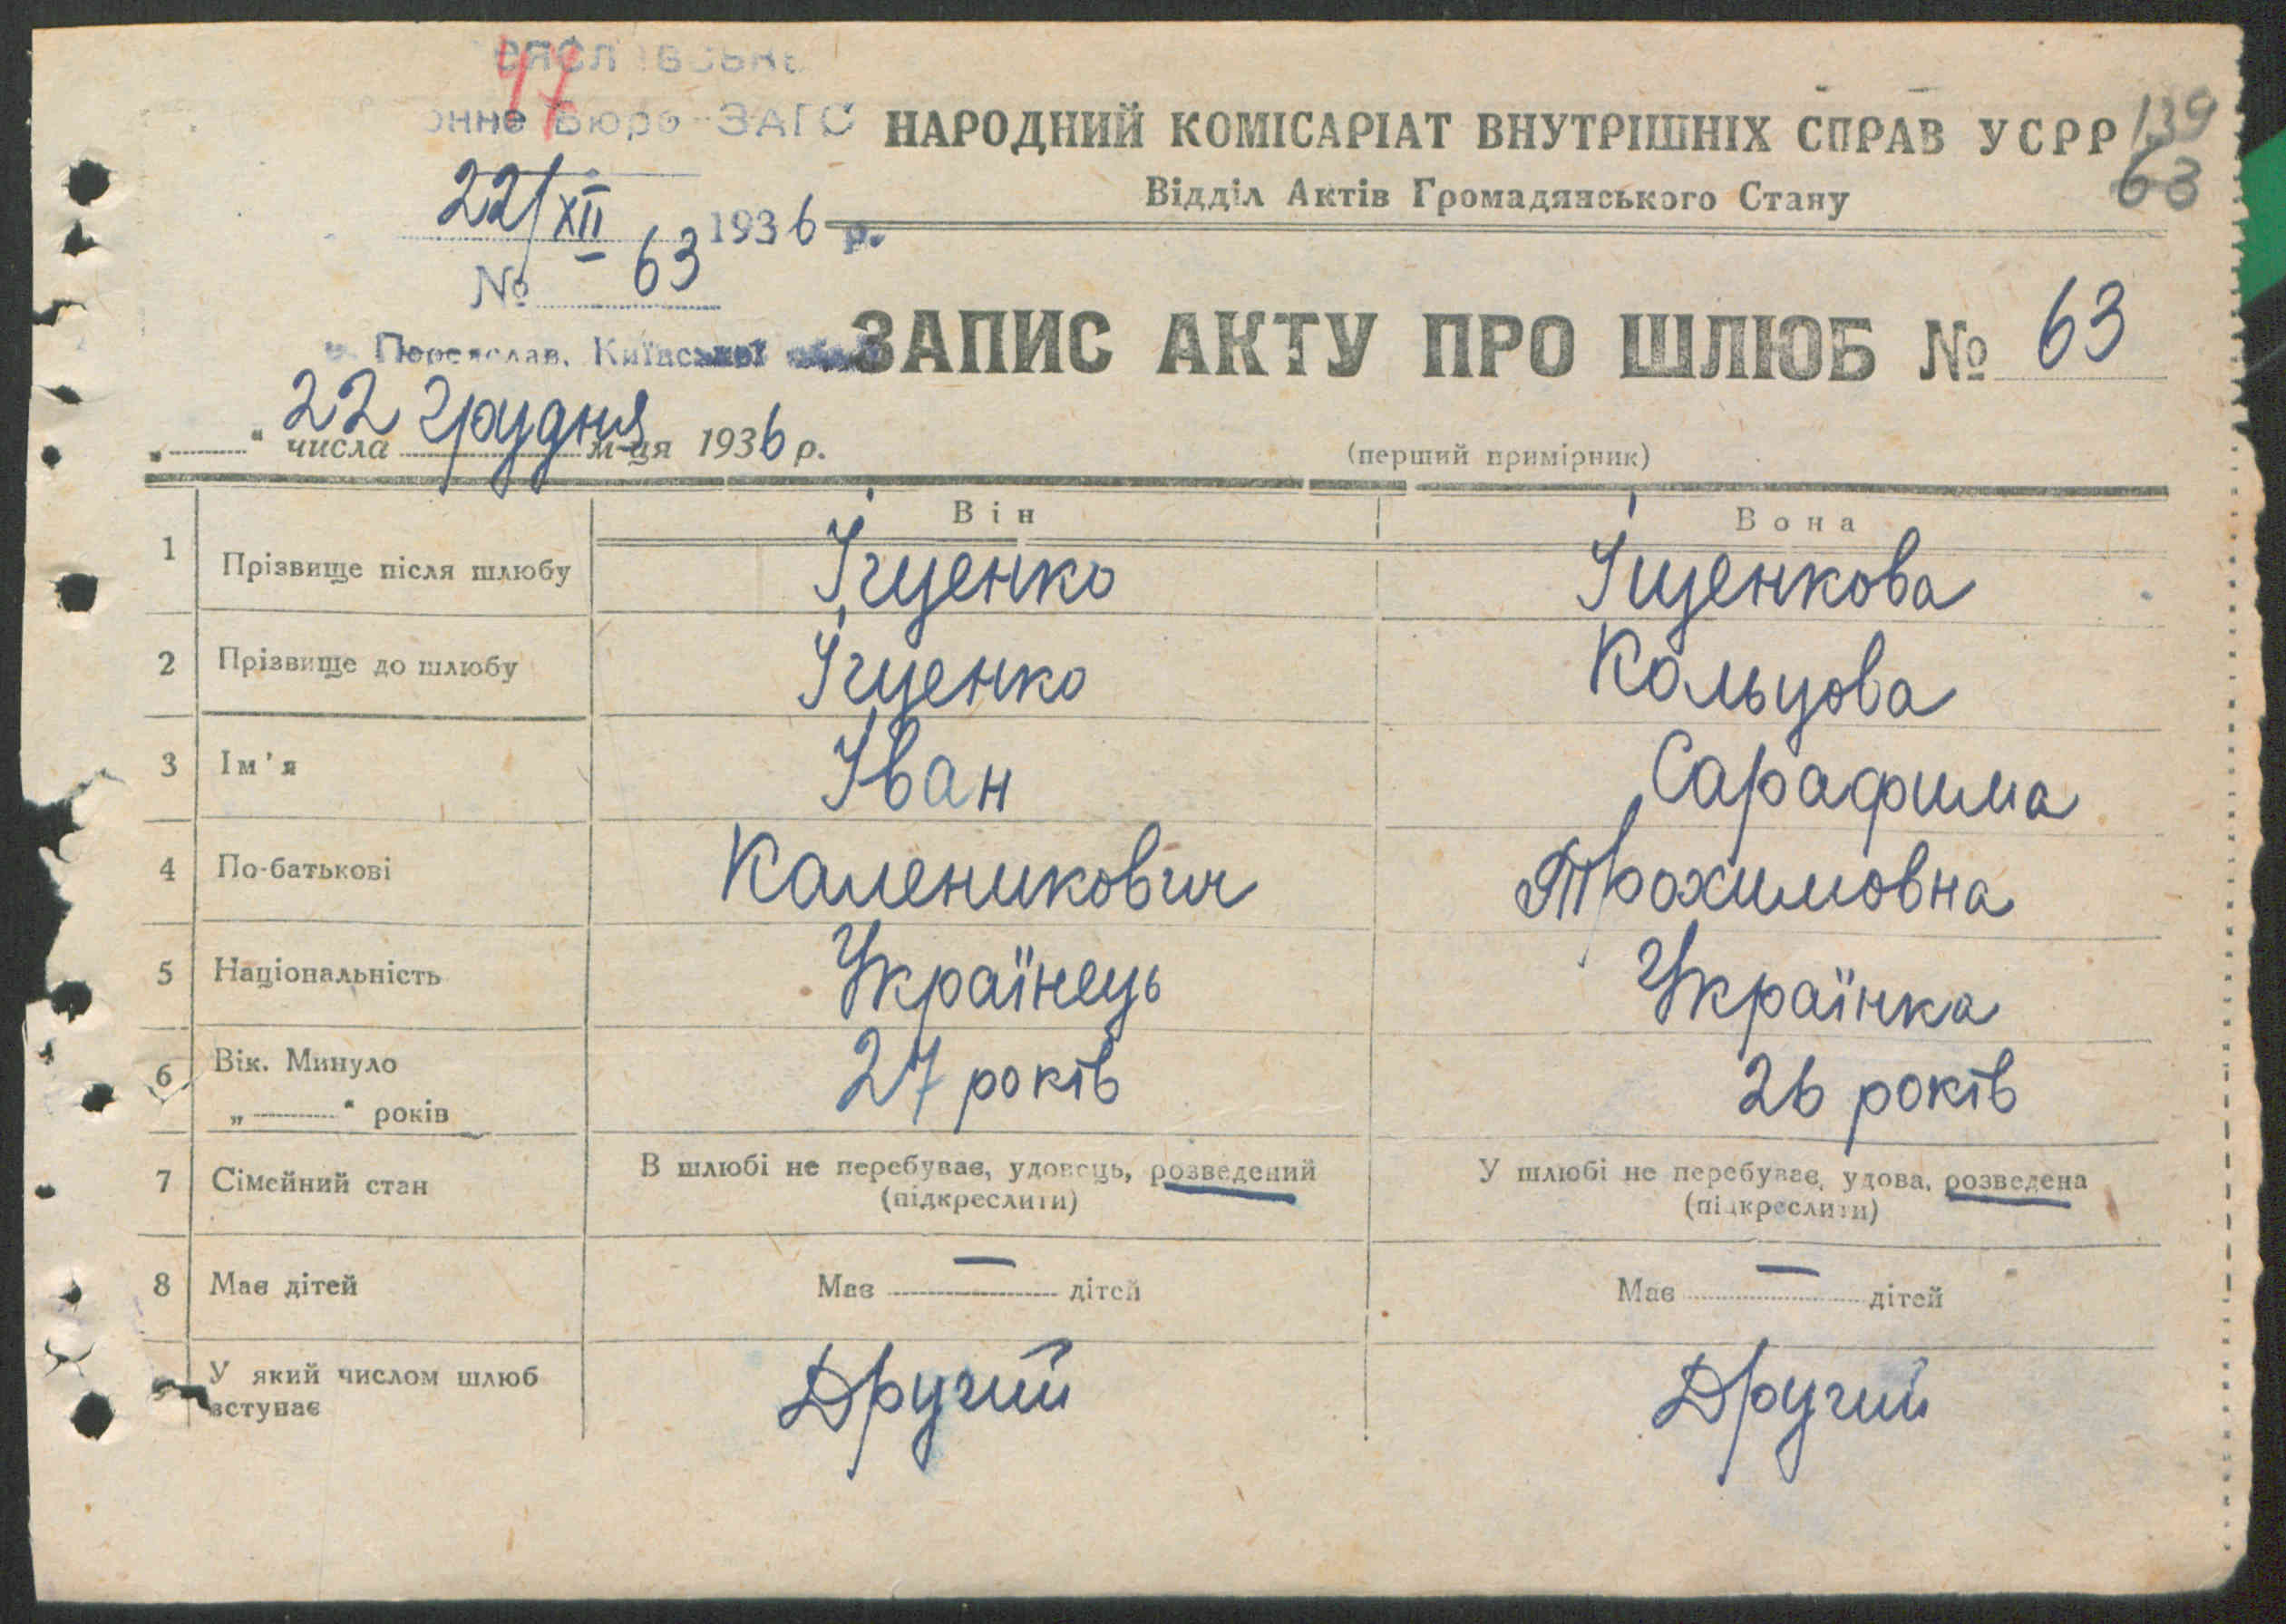 47
онне Бюро ЗАГС
НАРОДНИЙ КОМІСАРІАТ ВНУТРІШНІХ СПРАВ УСРР
139
63
Відділ Актів Громадянського Стану
22/XII 1936 р.
№ 63
м. Переяслав, Київської
ЗАПИС АКТУ ПРО ШЛЮБ № 63
„ " числа 22 грудня м-ця 1936 р.
(перший примірник)
Він Вона
1 Прізвище після шлюбу Іщенко Іщенкова
2 Прізвище до шлюбу Іщенко Кольцова
3 Ім'я Іван Сарафима
4 По-батькові Каленикович Трохимовна
5 Національність Українець Українка
6 Вік. Минуло 27 років 26 років
„ " років
7 Сімейний стан В шлюбі не перебуває, удовець, розведений У шлюбі не перебуває, удова, розведена
(підкреслити) (підкреслити)
8 Має дітей Має — дітей Має — дітей
9 У який числом шлюб Другий Другий
вступає